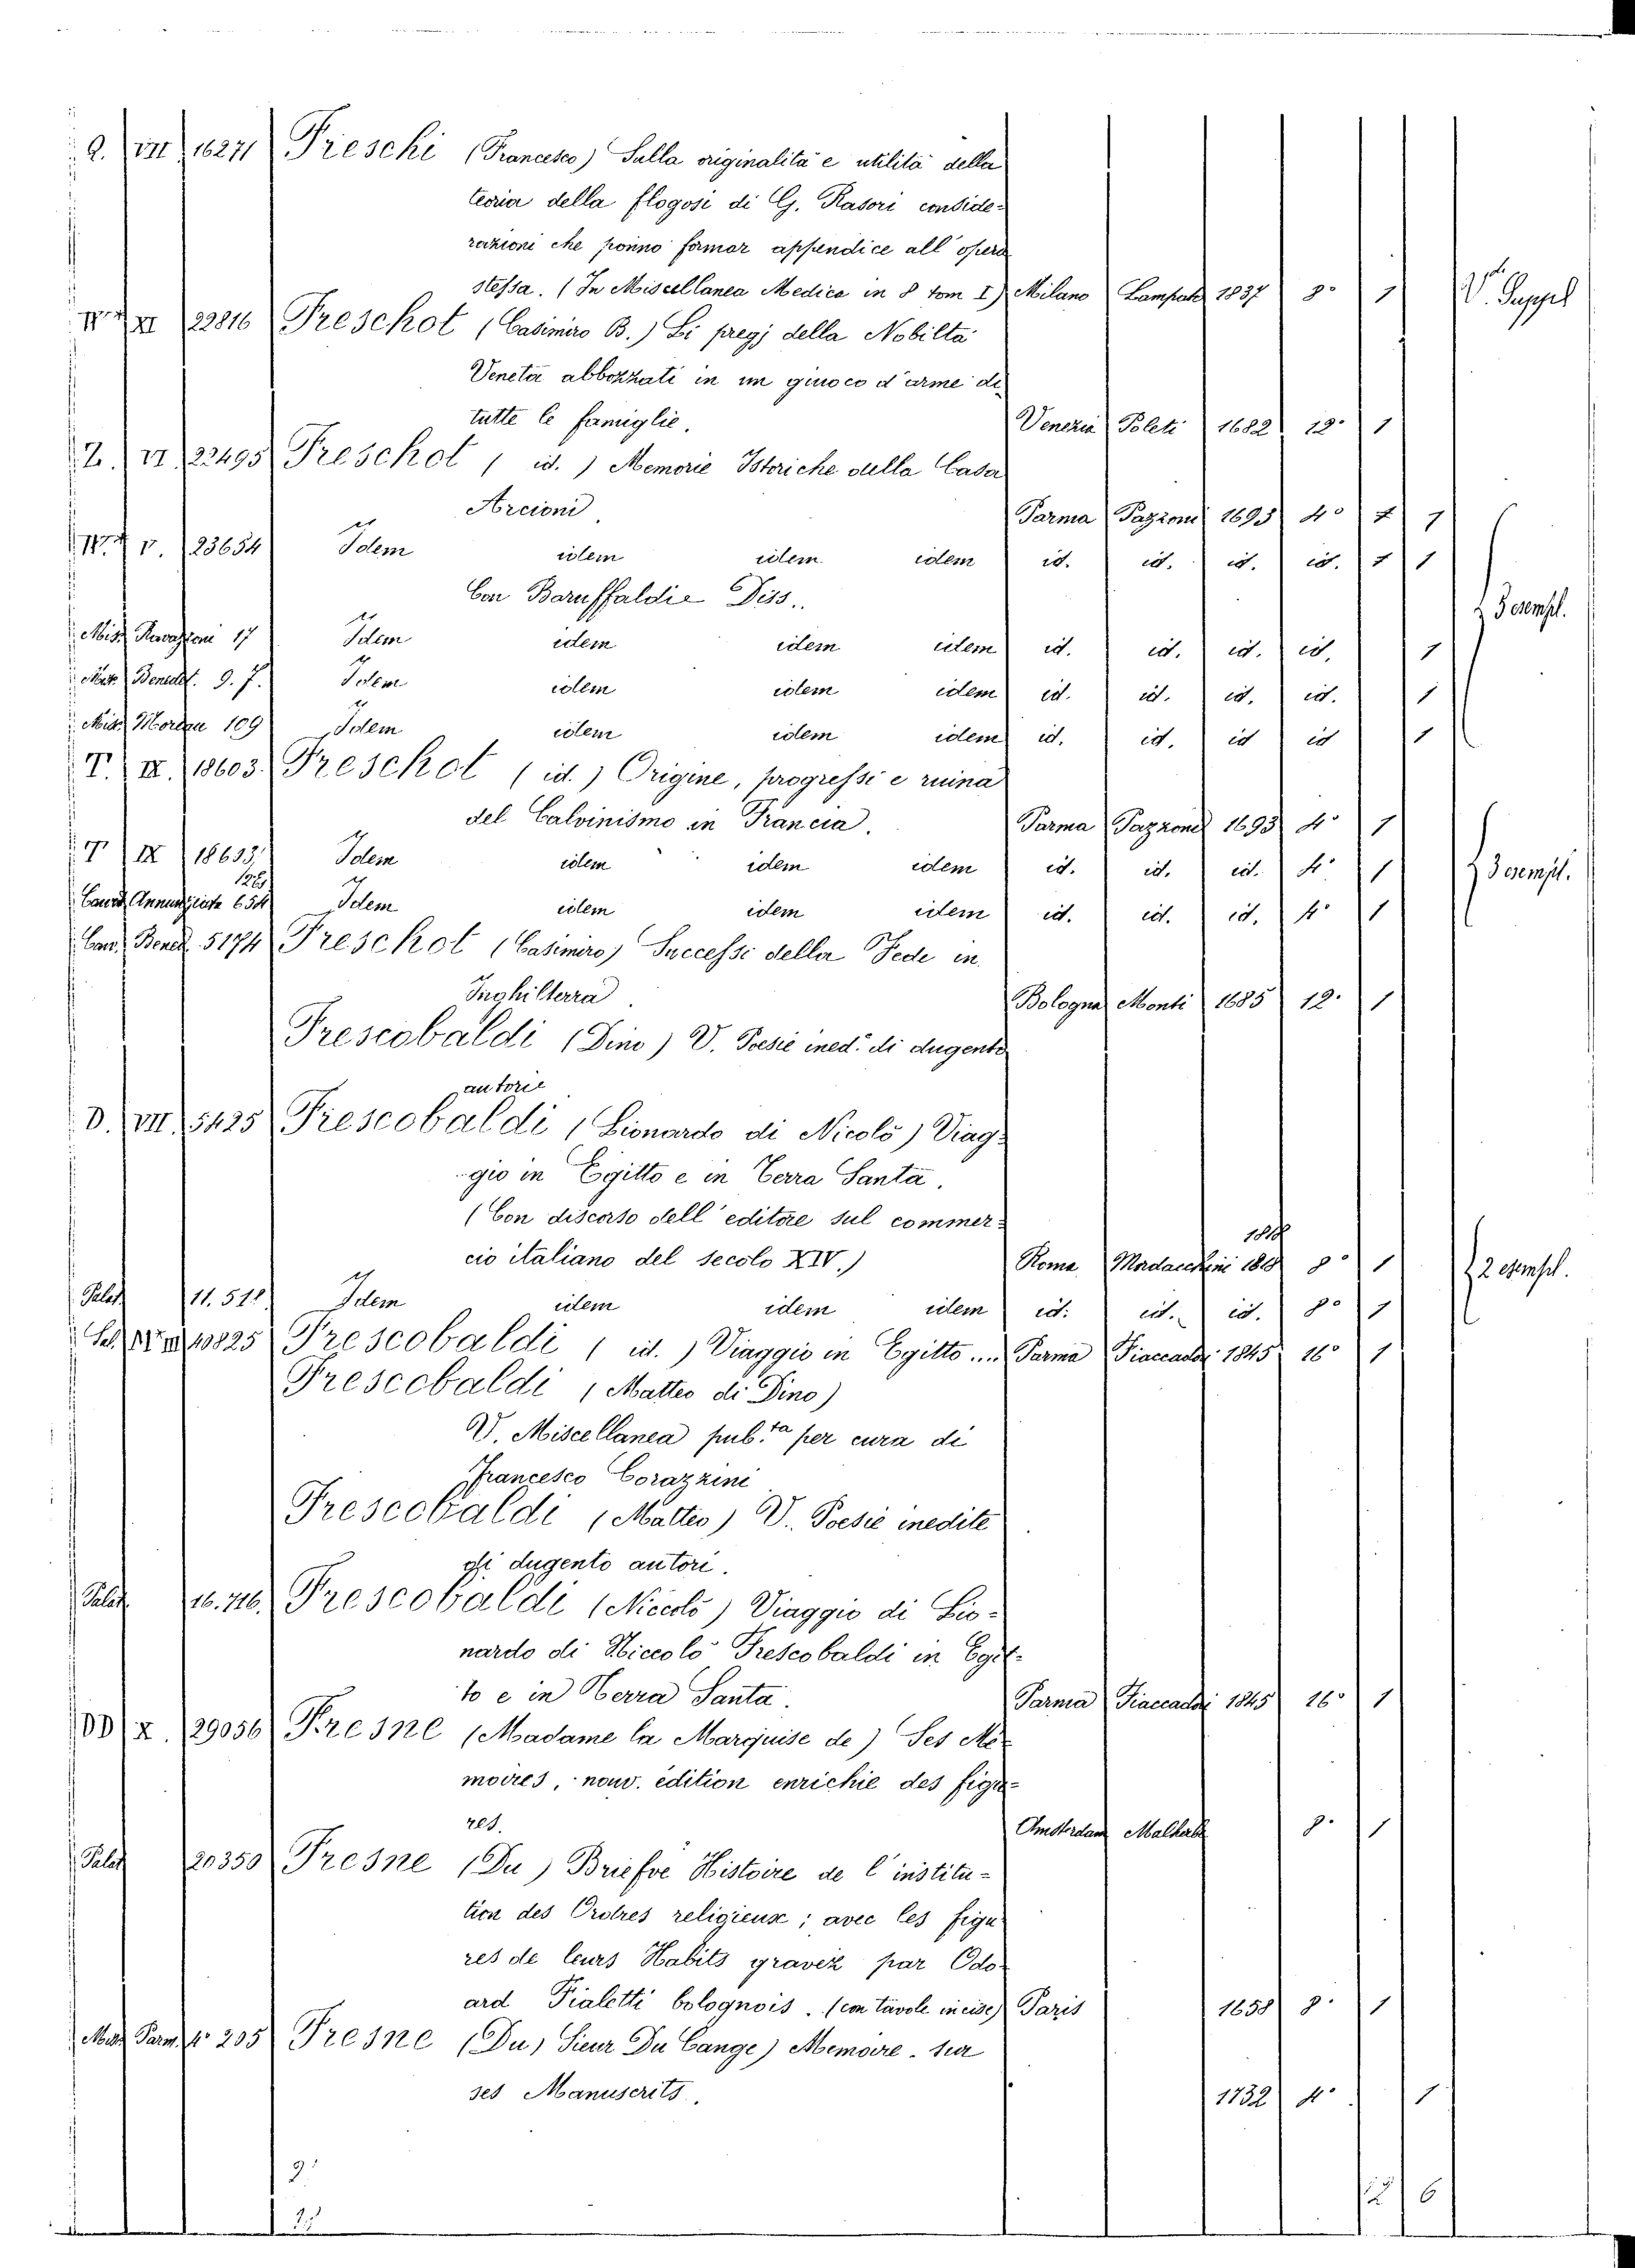 Q. VII 16271 Freschi (Francesco) Sulla originalità e utilità della
teoria della flogosi di G. Rasori conside-
razioni che ponno formar appendice all'opera
stessa. (In Miscellanea Medica in 8 tom I) Milano Lampato 1837 8° 1 V. Suppel
XI 22816 Freschot (Casimiro B.) Li pregj della Nobiltà
Veneta abbozzati in un giuoco d'arme di
tutte le famiglie. Venezia Poleti 1682 12° 1
Z. VI 22495 Freschot ( id. ) Memorie Istoriche della Casa
Arcioni Parma Pazzoni 1693 4° 1
V. 23654 Idem idem idem idem id. id. id. id. 1 1
Con Baruffaldi Diss.. 5 esempl.
Misc. Ravazzoni 17 Idem idem idem idem id. id. id. id. 1
Misc. Benedet. 9. 7. Idem idem idem idem id. id. id. id. 1
Misc. Moreau 109 Idem idem idem idem id. id. id id 1
T. IX. 18603. Freschot ( id. ) Origine, progressi e ruina
del Calvinismo in Francia. Parma Pazzoni 1693 4° 1
T IX 18633 Idem idem idem idem id. id. id. 4° 1 3 esempl.
Annunziata 654 Idem idem idem idem id. id. id. 4° 1
Bened. 5174 Freschot (Casimiro) Successi della Fede in
Inghilterra Bologna Monti 1685 12° 1
Frescobaldi (Dino) V. Poesie ined. di dugento
autori
D. VII. 5425 Frescobaldi (Lionardo di Nicolò) Viag-
gio in Egitto e in Terra Santa.
(Con discorso dell'editore sul commer-
cio italiano del secolo XIV.) Roma Mordacchini 1818 8° 1 2 esempl.
Palat. 11.518 Idem idem idem idem id. id. id. 8° 1
10825 Frescobaldi ( id. ) Viaggio in Egitto.... Parma Fiaccadori 1845 16° 1
Frescobaldi (Matteo di Dino)
V. Miscellanea pub.ta per cura di
Francesco Corazzini
Frescobaldi (Matteo) V. Poesie inedite
di dugento autori.
Palat. 16.716. Frescobaldi (Niccolò) Viaggio di Lio-
nardo di Niccolò Frescobaldi in Egit-
to e in Terra Santa. Parma Fiaccadori 1845 16° 1
DD X. 29056 Fresne (Madame la Marquise de) Ses Mé-
moires, nouv. édition enrichie des figu-
res. Amsterdam Malherbe 8° 1
Palat 20350 Fresne (Du) Briefve Histoire de l'institu-
tion des Ordres religieux; avec les figu-
res de leurs Habits gravéz par Odo-
ard Fialetti bolognois. (con tavole incise) Paris 1658 8° 1
Parm. 4° 205 Fresne (Du) Sieur Du Cange) Memoire sur
ses Manuscrits. 1732 4° 1
2
6